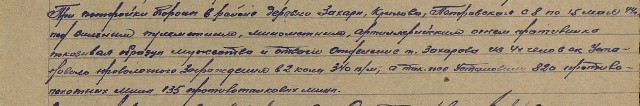 При постройки обороны в районе деревни Захари, Крюково, Петровское с 8 по 15 мая 44г.
под сильным пулеметным, минометным, артиллерийским огнем противника
показывал образцы мужества и отваги Отделение т. Захарова из 4х человек уста-
проволочного заграждения в 2 кола 340 п/м; а так-же установили 820 противо-
пехотных мин и 135 противотанковых мин.